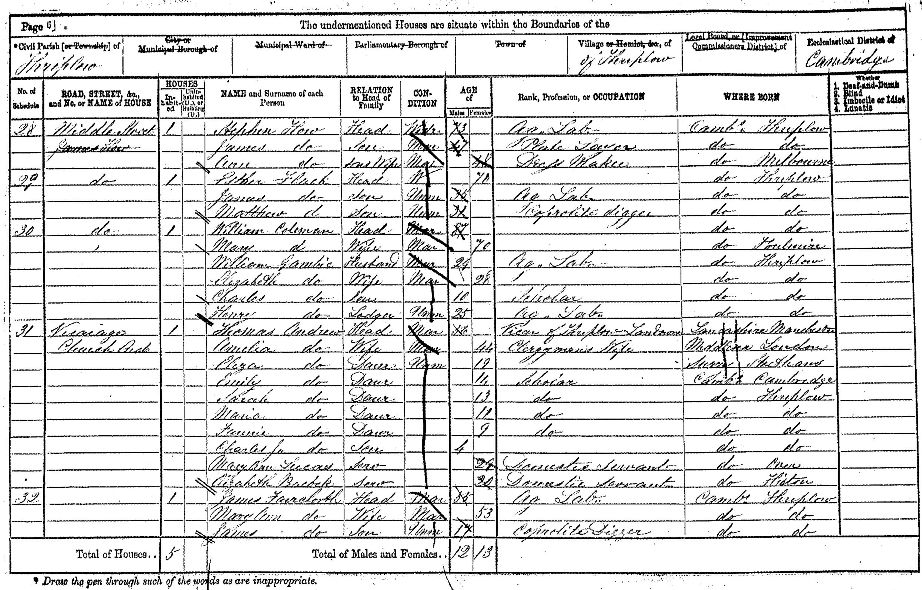 Page 6] The undermentioned Houses are situate within the Boundaries of the
*Civil Parish [or Township] of City or Municipal Borough of Municipal Ward of Parliamentary Borough of Town of Village or Hamlet, &c., of Local Board, or [Improvement Commissioners District] of Ecclesiastical District of
Thriplow of Thriplow Cambridge
No. of Schedule ROAD, STREET, &c., and No. or NAME of HOUSE HOUSES Inhabited NAME and Surname of each Person RELATION to Head of Family CONDITION AGE of Males Females Rank, Profession, or OCCUPATION WHERE BORN Whether 1. Deaf-and-Dumb 2. Blind 3. Imbecile or Idiot 4. Lunatic
28 Middle Street 1 Stephen How Head 73 Ag. Lab. Camb. Thriplow
James How James do Son 47 Plate Layer do do
Ann do Sons Wife Mar Dress Maker do Melbourne
29 do 1 Esther Flack Head W 70 do Thriplow
James do Son Unm Ag Lab do do
Matthew d Son Unm Coprolite digger do do
30 do 1 William Coleman Head Mar do do
Mary d Wife Mar 70 do Foulmire
William Gamlie Husband Mar Ag. Lab. do Thriplow
Elizabeth do Wife Mar 28 do do
Charles do Son 10 Scholar do do
Henry do Lodger Unm 25 Ag. Lab. do do
31 Vicarage 1 Thomas Andrew Head Mar Vicar of Thriplow Lancashire Manchester
Church Road Amelia do Wife Mar 44 Clergymans Wife Middlesex London
Eliza do Daur Unm 19 Surrey
Emily do Daur Scholar Camb. Cambridge
Sarah do Daur 13 do do Thriplow
Maria do Daur 11 do do do
Fannie do Daur 9 do do do
Charles Jn do Son 4 do do
Mary Ann Lucas Serv Domestic Servant do Over
Elizabeth Serv 20 Domestic Servant do Histon
32 1 James Farnworth Head Mar 55 Ag Lab Camb. Thriplow
Mary Ann do Wife Mar 53 do do
James do Son Unm 17 Coprolite Digger do do
Total of Houses.. 5 Total of Males and Females.. 12 13
* Draw the pen through such of the words as are inappropriate.